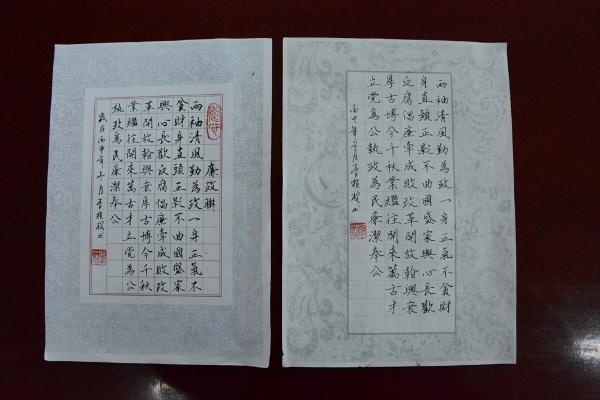 廉政聯
兩袖清風勤為政一身正氣不
貪財身直頭正影不曲國盛家
興心長歡反腐倡廉牽成敗改
革開放翰興衰厚古博今千秋
業繼往開來萬古才立党為公
执政為民廉潔奉公
歲在丙申年 月
兩袖清風勤為政一身正氣不貪財
身直頭正影不曲國盛家興心長歡
反腐倡廉牽成敗改革開放翰興衰
厚古博今千秋業繼往開來萬古才
立党為公执政為民廉潔奉公
丙申年 月